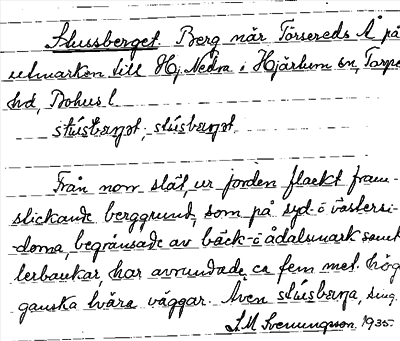 Slussberget. Berg när Törsereds Å på
utmarken till Hj. Nedra i Hjärtum sn, Torpe
hd, Bohus l.
slúsbærjət, slúsbærjət.
Från norr slät, ur jorden flackt fram-
stickande berggrund, som på syd- o västersi-
dorna, begränsade av bäck- o ådalsmark samt
lerbankar, har avrundade, ca fem met. hög
ganska tvära väggar. Även slúsbærja, sing.
S.M Svenungsson 1935.